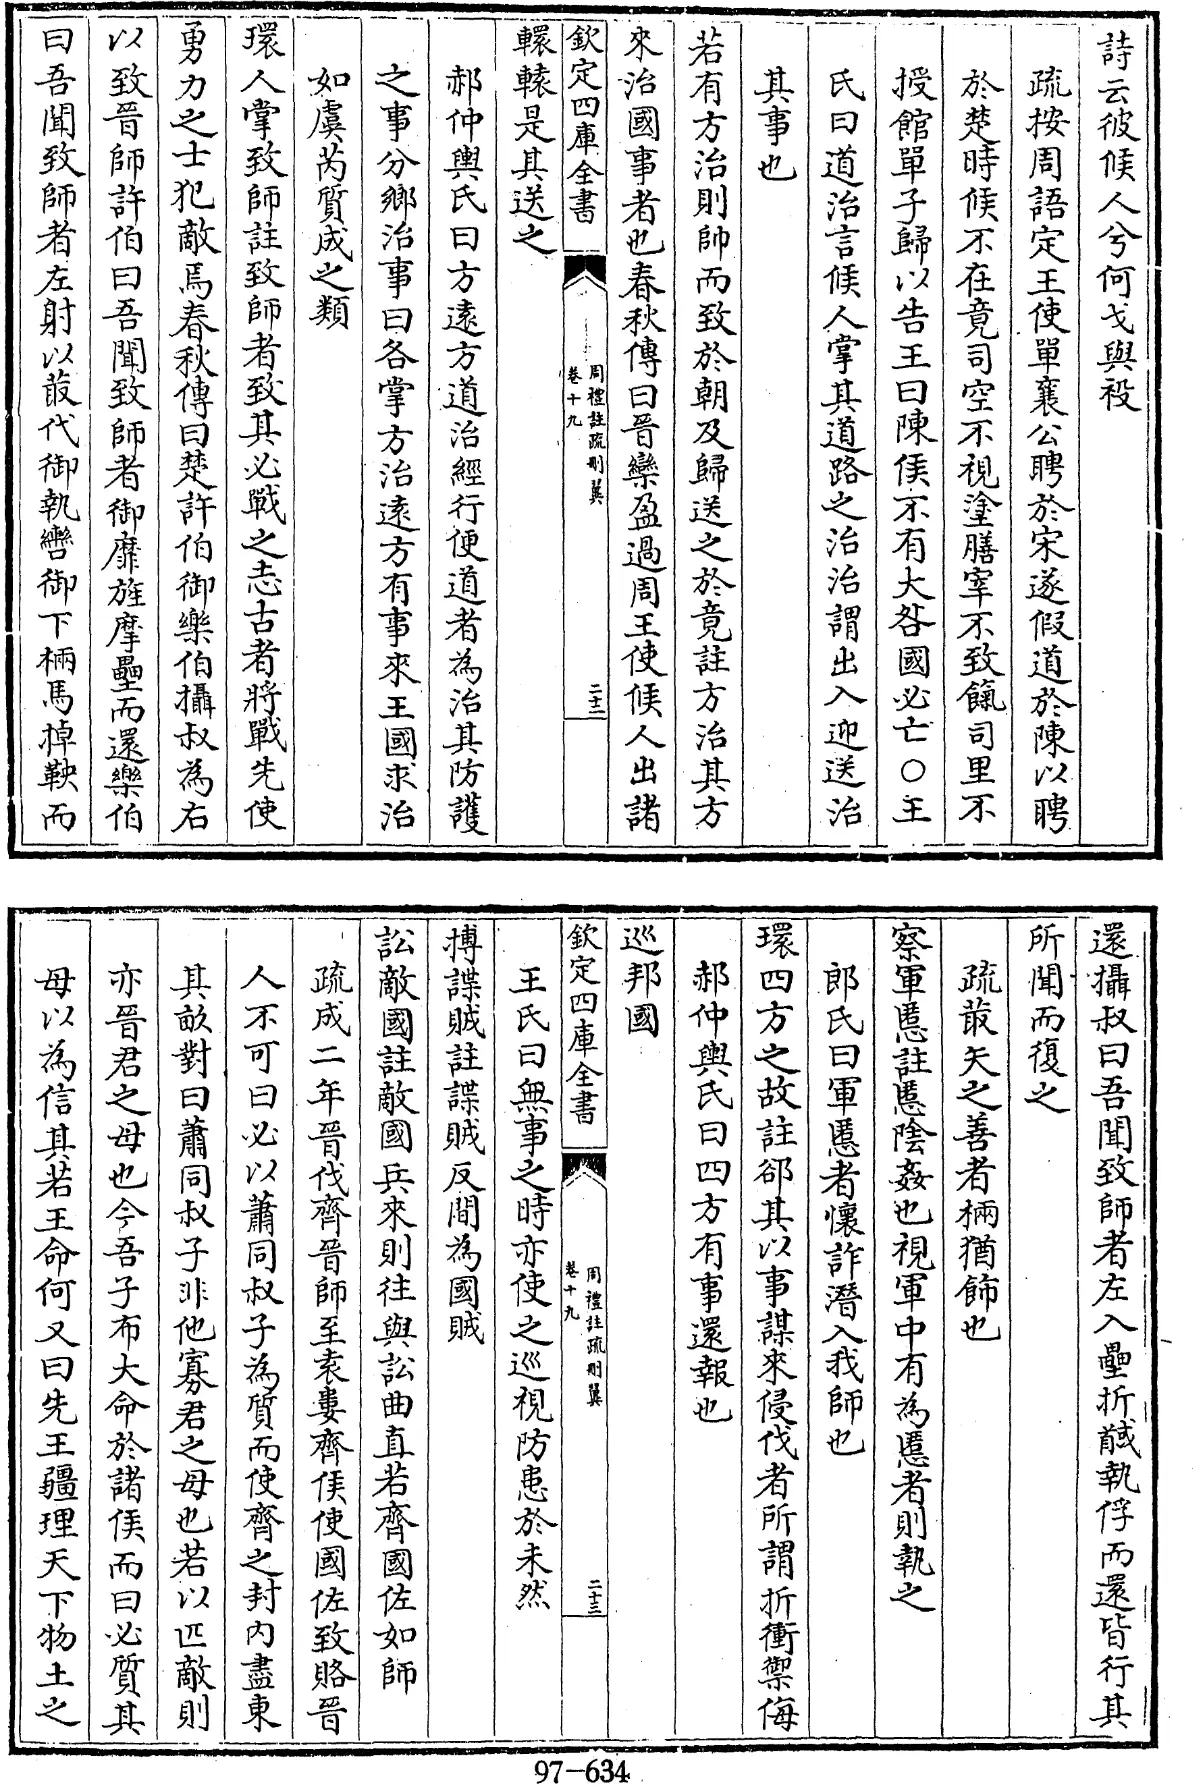 詩云彼候人兮何戈與祋
疏按周語定王使單襄公聘於宋遂假道於陳以聘
於楚時候不在竟司空不視塗膳宰不致餼司里不
授館單子歸以告王曰陳侯不有大咎國必亡○王
氏曰道治言候人掌其道路之治治謂出入迎送治
其事也
若有方治則帥而致於朝及歸送之於竟註方治其方
來治國事者也春秋傳曰晉欒盈過周王使候人出諸
欽定四庫全書
周禮註疏刪翼
卷十九
二十二
轘轅是其送之
郝仲輿氏曰方遠方道治經行便道者為治其防護
之事分鄉治事曰各掌方治遠方有事來王國求治
如虞芮質成之類
環人掌致師註致師者致其必戰之志古者將戰先使
勇力之士犯敵焉春秋傳曰楚許伯御樂伯攝叔為右
以致晉師許伯曰吾聞致師者御靡旌摩壘而還樂伯
曰吾聞致師者左射以菆代御執轡御下㭃馬掉鞅而
還攝叔曰吾聞致師者右入壘折馘執俘而還皆行其
所聞而復之
疏菆矢之善者㭃猶飾也
察軍慝註慝陰姦也視軍中有為慝者則執之
郎氏曰軍慝者懷詐潛入我師也
環四方之故註郤其以事謀來侵伐者所謂折衝禦侮
郝仲輿氏曰四方有事還報也
巡邦國
欽定四庫全書
周禮註疏刪翼
卷十九
二十三
王氏曰無事之時亦使之巡視防患於未然
搏諜賊註諜賊反間為國賊
訟敵國註敵國兵來則往與訟曲直若齊國佐如師
疏成二年晉伐齊晉師至袁婁齊侯使國佐致賂晉
人不可曰必以蕭同叔子為質而使齊之封內盡東
其畝對曰蕭同叔子非他寡君之母也若以匹敵則
亦晉君之母也今吾子布大命於諸侯而曰必質其
母以為信其若王命何又曰先王疆理天下物土之
97-634